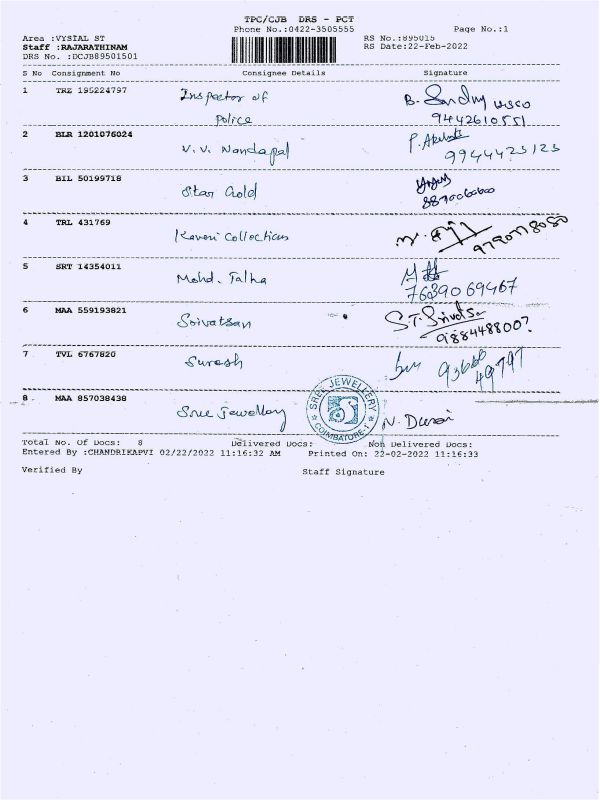 TPC/CJB DRS - PCT
Phone No.:0422-3505555 Page No.:1
Area :VYSIAL ST RS No.:895015
Staff :RAJARATHINAM RS Date:22-Feb-2022
DRS No. :DCJB89501501
S No Consignment No Consignee Details Signature
1 TRZ 195224797 Inspector of B. Sandy WSCO
Police 9442610551
2 BLR 1201076024 V.V. Nandapal P.
9944423123
3 BIL 50199718 Star Gold
4 TRL 431769 Kaveri Collections
5 SRT 14354011 Mohd. Talha
7639069467
6 MAA 559193821 Srivatsan S.T. Srivats
9884488007
7 TVL 6767820 Suresh
8 MAA 857038438 Sree Jewellery N. Durai
SREE JEWELLERY
COIMBATORE-1
Total No. Of Docs: 8 Delivered Docs: Non Delivered Docs:
Entered By :CHANDRIKAPVI 02/22/2022 11:16:32 AM Printed On: 22-02-2022 11:16:33
Verified By Staff Signature